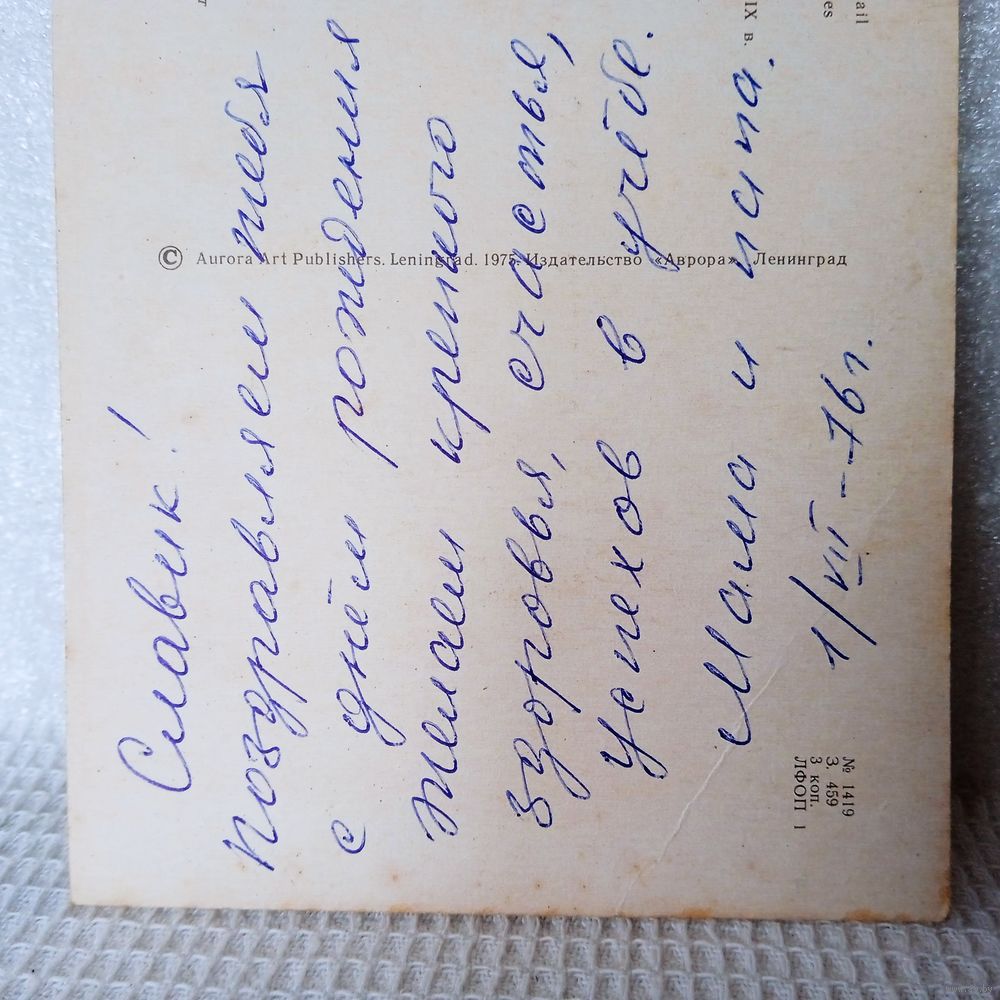 Славик!
поздравляем тебя
с днём рождения
Желаем крепкого
здоровья, счастья,
успехов в учёбе.
Мама и папа.
1/VII-76г.
© Aurora Art Publishers. Leningrad. 1975. Издательство «Аврора». Ленинград
№ 1419
З. 459
3 коп.
ЛФОП 1
IX в.
ail
es
т